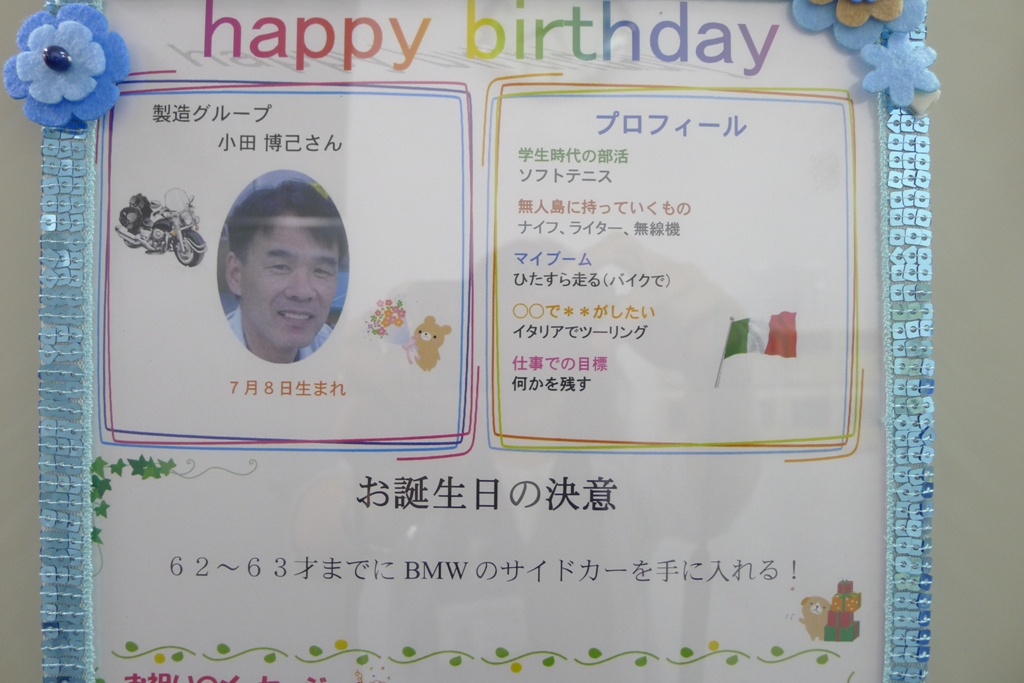 happy birthday
製造グループ
小田 博己さん
7月8日生まれ
プロフィール
学生時代の部活
ソフトテニス
無人島に持っていくもの
ナイフ、ライター、無線機
マイブーム
ひたすら走る(バイクで)
〇〇で＊＊がしたい
イタリアでツーリング
仕事での目標
何かを残す
お誕生日の決意
６２～６３才までに BMW のサイドカーを手に入れる！
お祝いのメッセージ